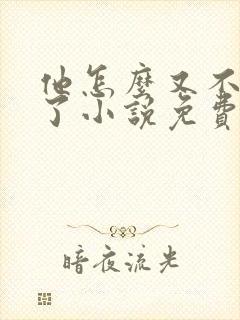 他怎麼又不
了小說免費
暗夜流光